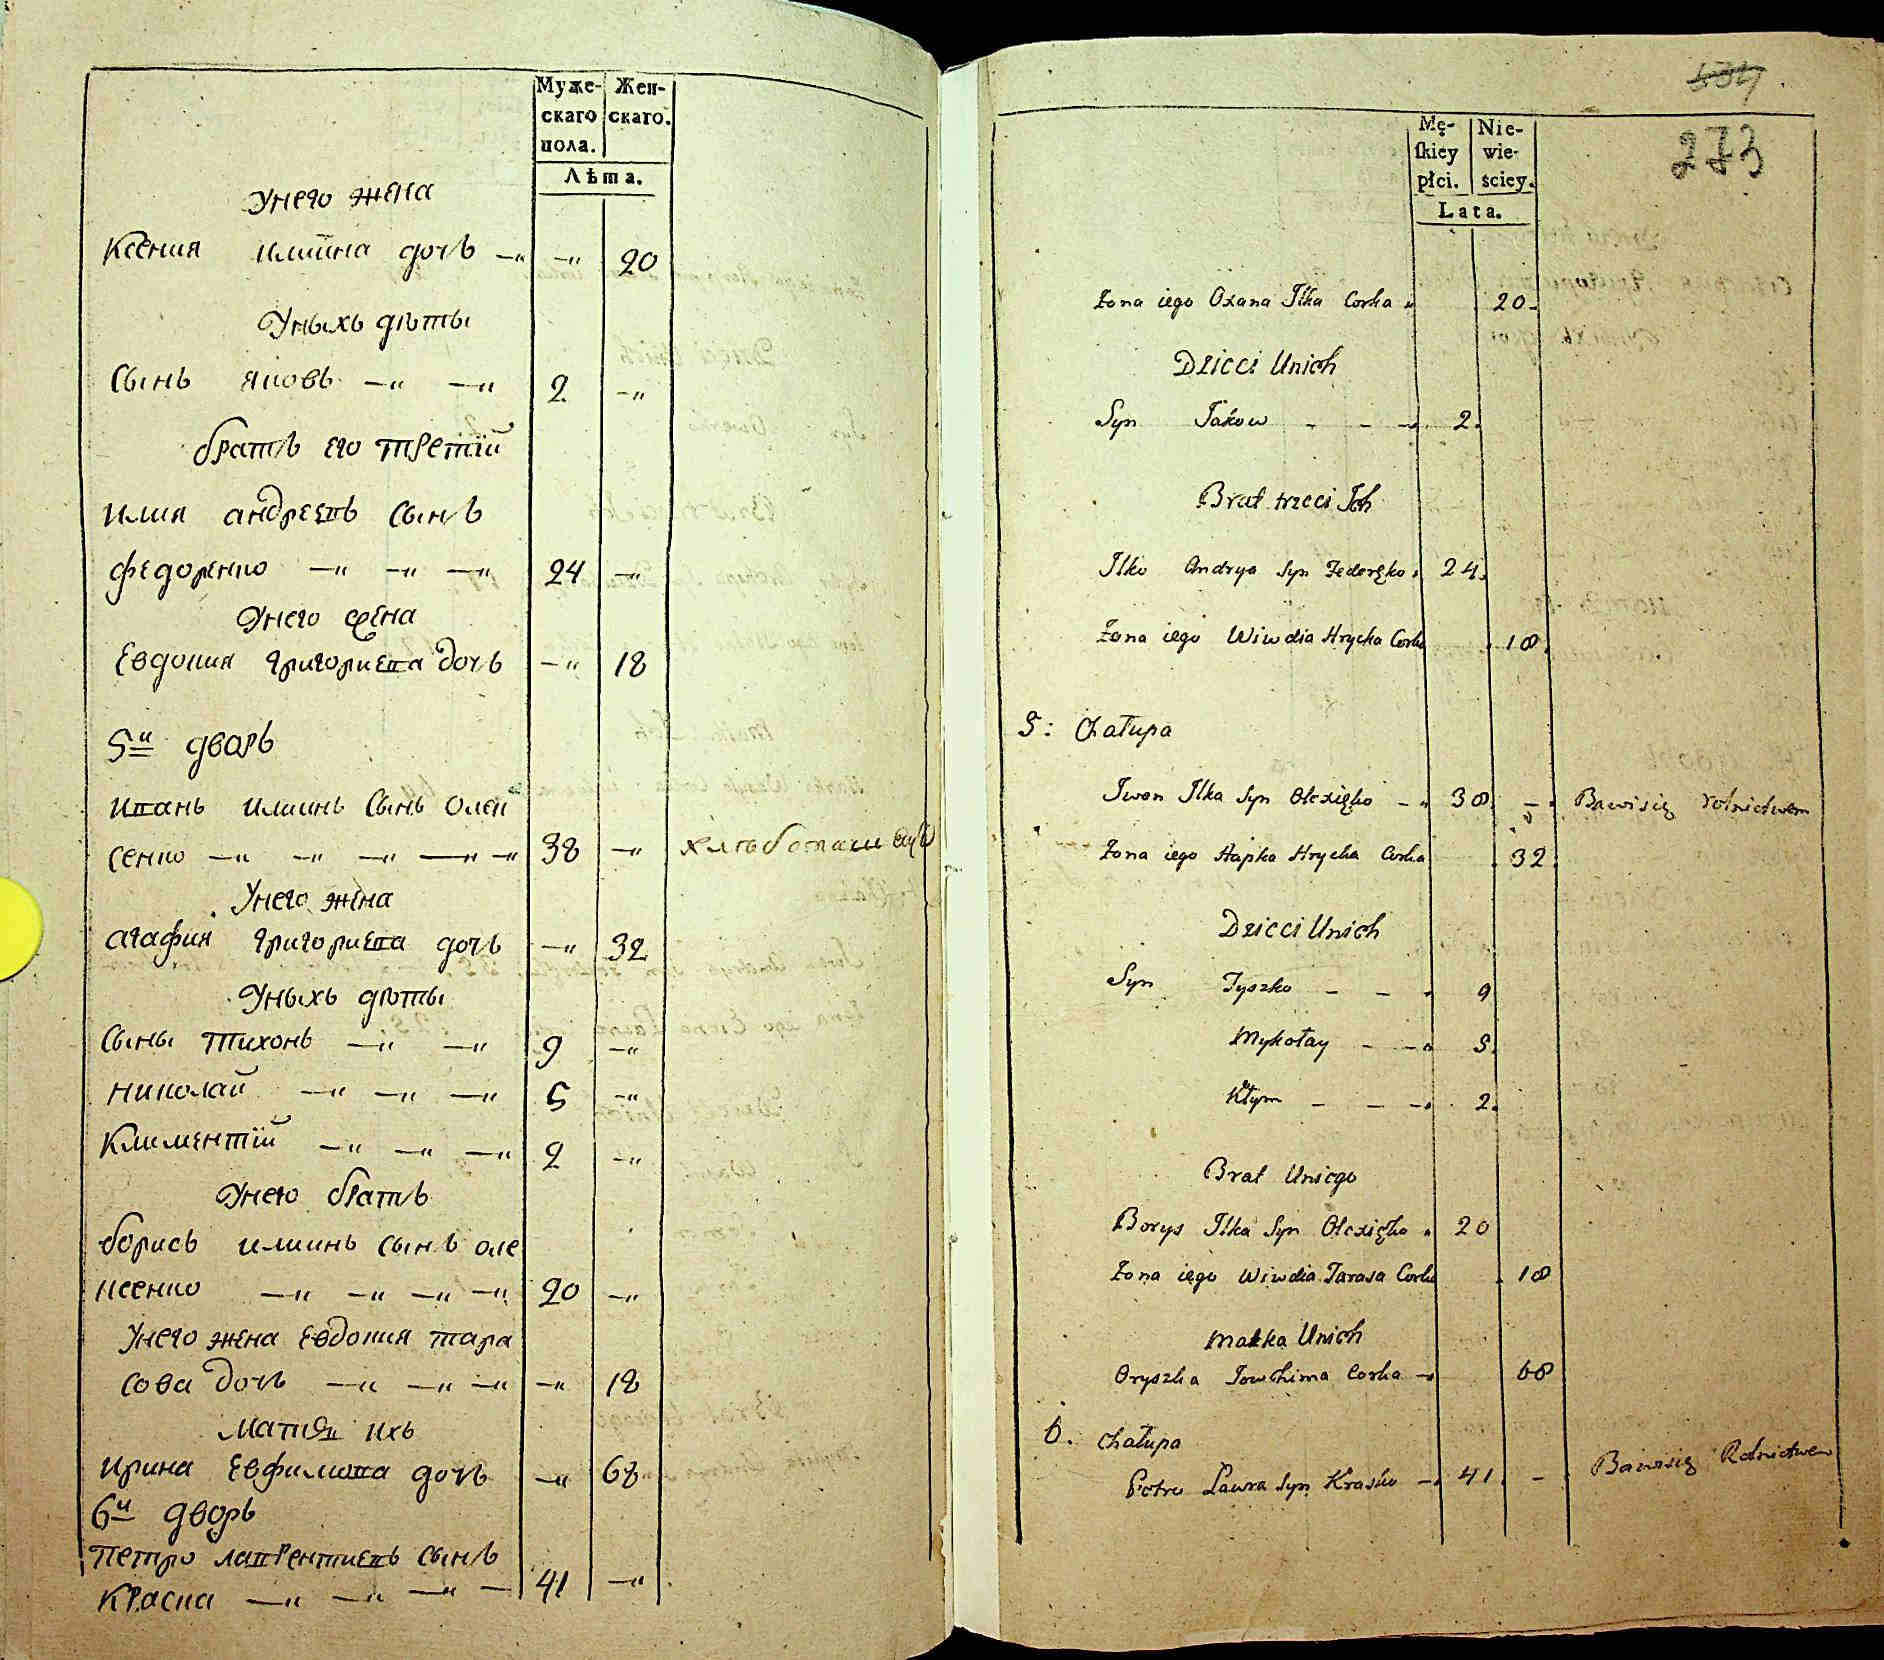 Муже-
скаго
пола.
Жен-
скаго.
Лѣта.
Унего жена
Ксения илиина дочь 20
Уныхъ дѣты
Сынъ яковъ 2
братъ его третій
илия андреевъ сынъ
федоренко 24
Унего жена
Евдокия григориева дочь 18
5й дворъ
иванъ илиинъ сынъ олек
сенко 38 хлѣбопашецъ
Унего жена
агафия григориева дочь 32
Уныхъ дѣты
Сыны тихонъ 9
николай 5
Климентій 2
Унего братъ
борисъ илиинъ сынъ оле
ксенко 20
Унего жена Евдокия тара
сова дочь 18
Матъ ихъ
ирина Евфимова дочь 68
6й дворъ
петро лаврентиевъ сынъ
Красна 41
534
273
Mę-
skiey
płci.
Nie-
wie-
ściey.
Lata.
Żona iego Oxana Ilka Corka 20
Dzieci Unich
Syn Jakow 2
Brat trzeci Ich
Ilko Andrya Syn Federęko 24
Żona iego Wiwdia Hrycka Corka 18
5: Chałupa
Iwan Ilka Syn Olexięko 38 Bawi się rolnictwem
Żona iego Hapka Hrycka Corka 32
Dzieci Unich
Syn Tyszko 9
Mykołay 5
Kłym 2
Brat Uniego
Borys Ilka Syn Olexięko 20
Żona iego Wiwdia Tarasa Corka 18
Matka Unich
Oryszka Jowchima Corka 68
6. Chałupa
Petro Ławra Syn Krasko 41 Bawi się Rolnictwem